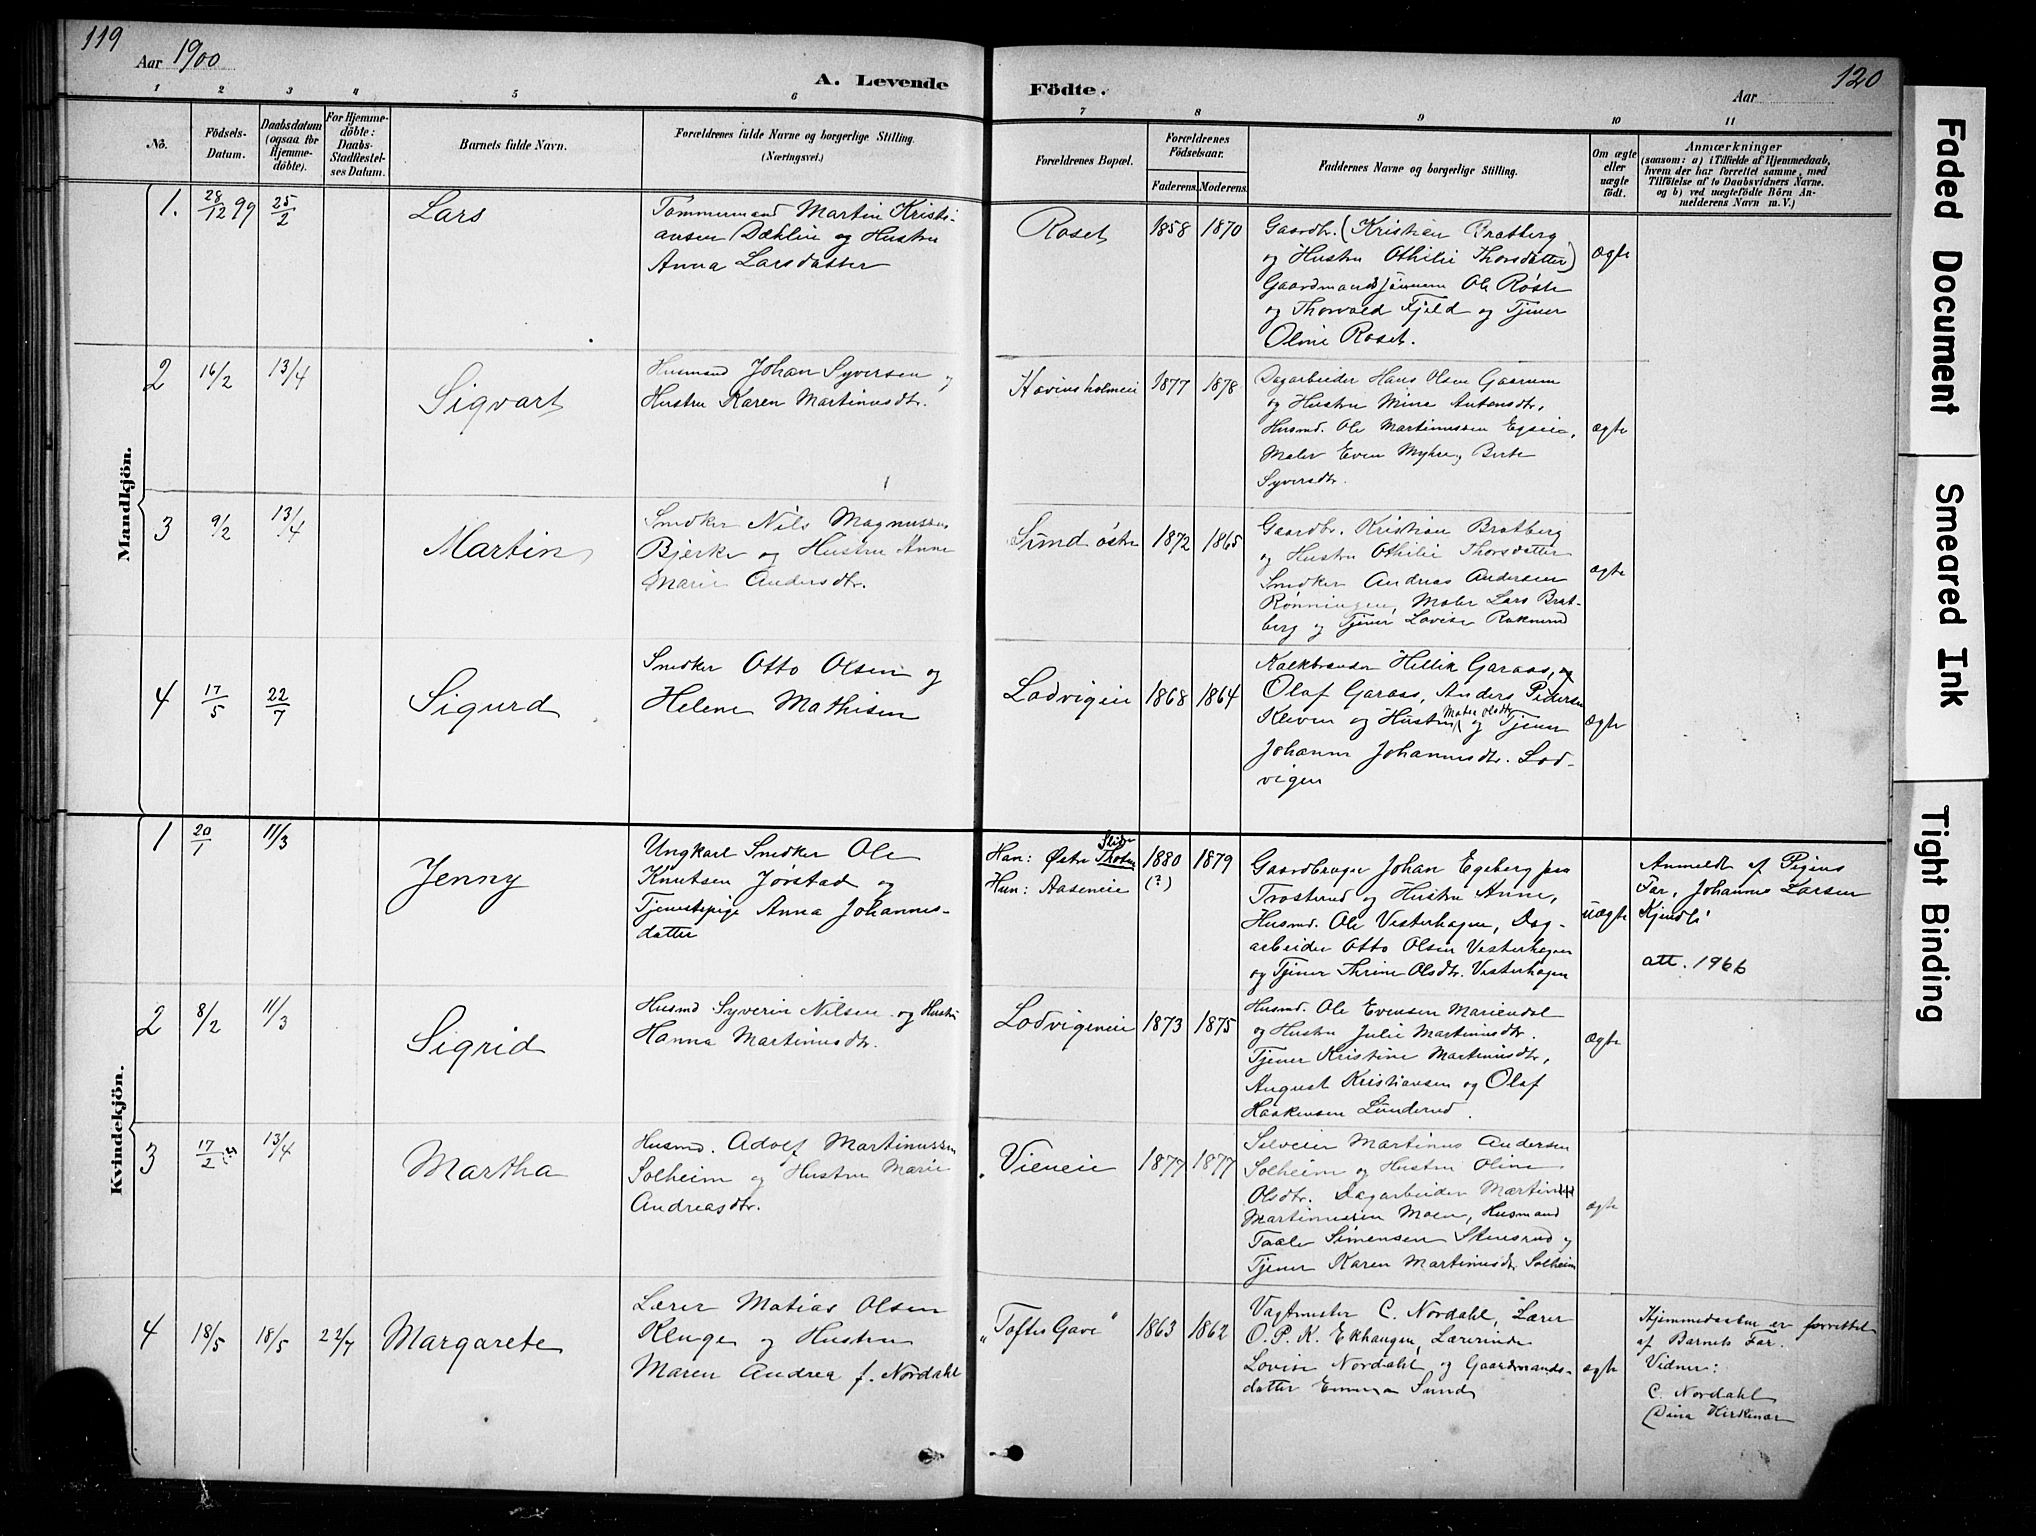 119
Aar 1900
A. Levende
Födte.
Aar
120
1
2
3
4
5
6
7
8
9
10
11
No.
Födsels-
Datum.
Daabsdatum
(ogsaa for
Hjemme-
döbte).
For Hjemme-
döbte:
Daabs-
Stadfæstel-
ses Datum.
Barnets fulde Navn.
Forældrenes fulde Navne og borgerlige Stilling.
(Næringsvei.)
Forældrenes Bopæl.
Forældrenes
Födselsaar.
Faderens.
Moderens.
Faddernes Navne og borgerlige Stilling.
Om ægte
eller
uægte
födt.
Anmærkninger
(saasom: a) i Tilfælde af Hjemmedaab,
hvem der har forrettet samme, med
Tilföielse af to Daabsvidners Navne.
og b) ved uægtefödte Börn An-
melderens Navn m. V.)
Mandkjön.
1. 28/12 99 25/2 Lars
Tømmermand Martin Kristi-
ansen Dæhlin og Hustru
Anna Larsdatter
Roset 1858 1870
Gaardbr. (Kristian Bratberg
og Hustru Othilie Thorsdatter)
Ole Røste
og Thorvald Fjeld og Tjener
Oline Roset.
ægte
2 16/2 13/4 Sigvart
Husmand Johan Syversen og
Hustru Karen Martinusdtr.
1877 1878
Dagarbeider Hans Olsen Gaarum
og Hustru Mina Antonsdtr,
Husmd. Ole Martinussen Egeie,
Maler Even Myhre, Berte
Syversdtr.
ægte
3 9/2 13/4 Martin
Snedker Nils Magnussen
Bjerke og Hustru Anne
Marie Andersdtr.
Sund østre 1872 1865
Gaardbr. Kristian Bratberg
og Hustru Othilie Thorsdatter
Snedker Andreas Andersen
Rønningen, Maler Lars Brat-
berg og Tjener Lovise Raknerud
ægte
4 17/5 22/7 Sigurd
Snedker Otto Olsen og
Helene Mathisen
Lodvigeie 1868 1864
Kalkbrænder Hellik Garaas, og
Olaf Garaas, Anders Pedersen
Kleven og Hustru og Tjener
Johanne Johannesdtr. Lod-
vigen
ægte
Kvindekjön.
1 20/1 11/3 Jenny
Ungkarl Snedker Ole
Knutsen Jørstad og
Tjenestepige Anna Johannes-
datter
Han: Østre Slidre Thoten
Hun: Aaseneie
1880 (?) 1879
Gaardbruger Johan Egeberg paa
Trosterud og Hustru Anne,
Husmd. Ole Vesterhagen, Dag-
arbeider Otto Olsen Vesterhagen
og Tjener Thrine Olsdtr. Vesterhagen
uægte
Anmeldt af Pigens
Far, Johannes Larsen
Kjendli
att. 1966
2 8/2 11/3 Sigrid
Husmd Syverin Nilsen og Hustru
Hanna Martinusdtr.
Lodvigeneie 1873 1875
Husmd. Ole Evensen Mariendal
og Hustru Julie Martinusdtr.
Tjener Kristine Martinusdtr,
August Kristiansen og Olaf
Haakensen Lunderud.
ægte
3 17/2 (?) 13/4 Martha
Husmd. Adolf Martinussen
Solheim og Hustru Marie
Andreasdtr.
Vieneie 1877 1877
Selveier Martinus Andersen
Solheim og Hustru Oline
Olsdtr. Dagarbeider Martin
Martinussen Moen, Husmand
Taale Simensen Skeusrud og
Tjener Karen Martinusdtr Solheim
ægte
4 18/5 18/5 22/7 Margarete
Lærer Matias Olsen
Kluge og Hustru
Maren Andrea f. Nordahl
"Toftes Gave" 1863 1862
Vagtmester C. Nordahl, Lærer
O.P.K. Ekhaugen, Lærerinde
Lovise Nordahl og Gaardmands-
datter Emma Sund
ægte
Hjemmedaaben er forrettet
af Barnets Far.
Vidner:
C. Nordahl
Dina Kirkenær
Faded Document
Smeared Ink
Tight Binding